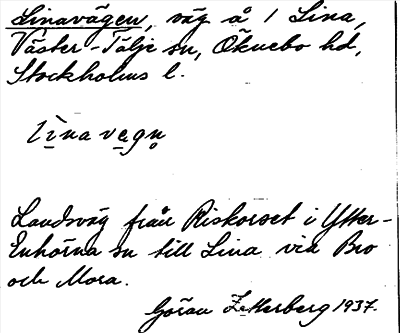 Linavägen, väg å 1 Lina,
Väster-Tälje sn, Öknebo hd,
Stockholms l.
lìnavęgn̥
Landsväg från Riskorset i Ytter-
Enhörna sn till Lina via Bro
och Mora.
Göran Zetterberg 1937.